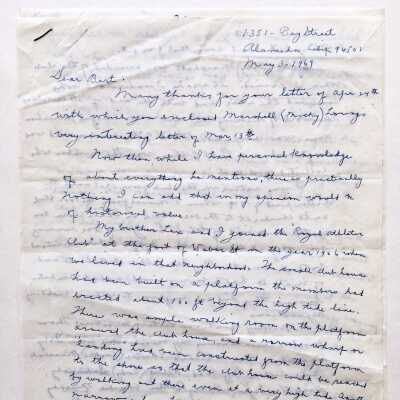 1351 - Bay Street
Alameda, Calif 94501
May 3 - 1969
Dear Bert:
Many thanks for your letter of Apr 29th
with which you enclosed Marshall (Misty)
very interesting letter of Mar, 13th.
Now then while I have personal knowledge
of about everything he mentions, there is practically
nothing I can add that in my opinion would be
of historical value.
My brother Les and I joined the Royal Athletic
Club" at the foot of St in the year 1906 when
we lived in that neighborhood. The small club house
had been built on a platform the members had
erected about 100 ft beyond the high tide line.
There was ample walking room on the platform
around the club house, and a narrow wharf or
landing had been constructed from the platform
to the shore so that the club house could be reached
by walking out there even at a very high tide
narrow